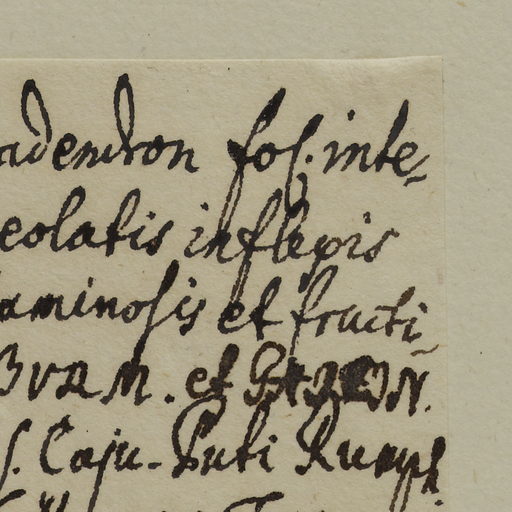 adendron fol. inte-
eolatis inflexis
aminosis et fructi-
BURM. et
s. Caju-Puti Rumph.